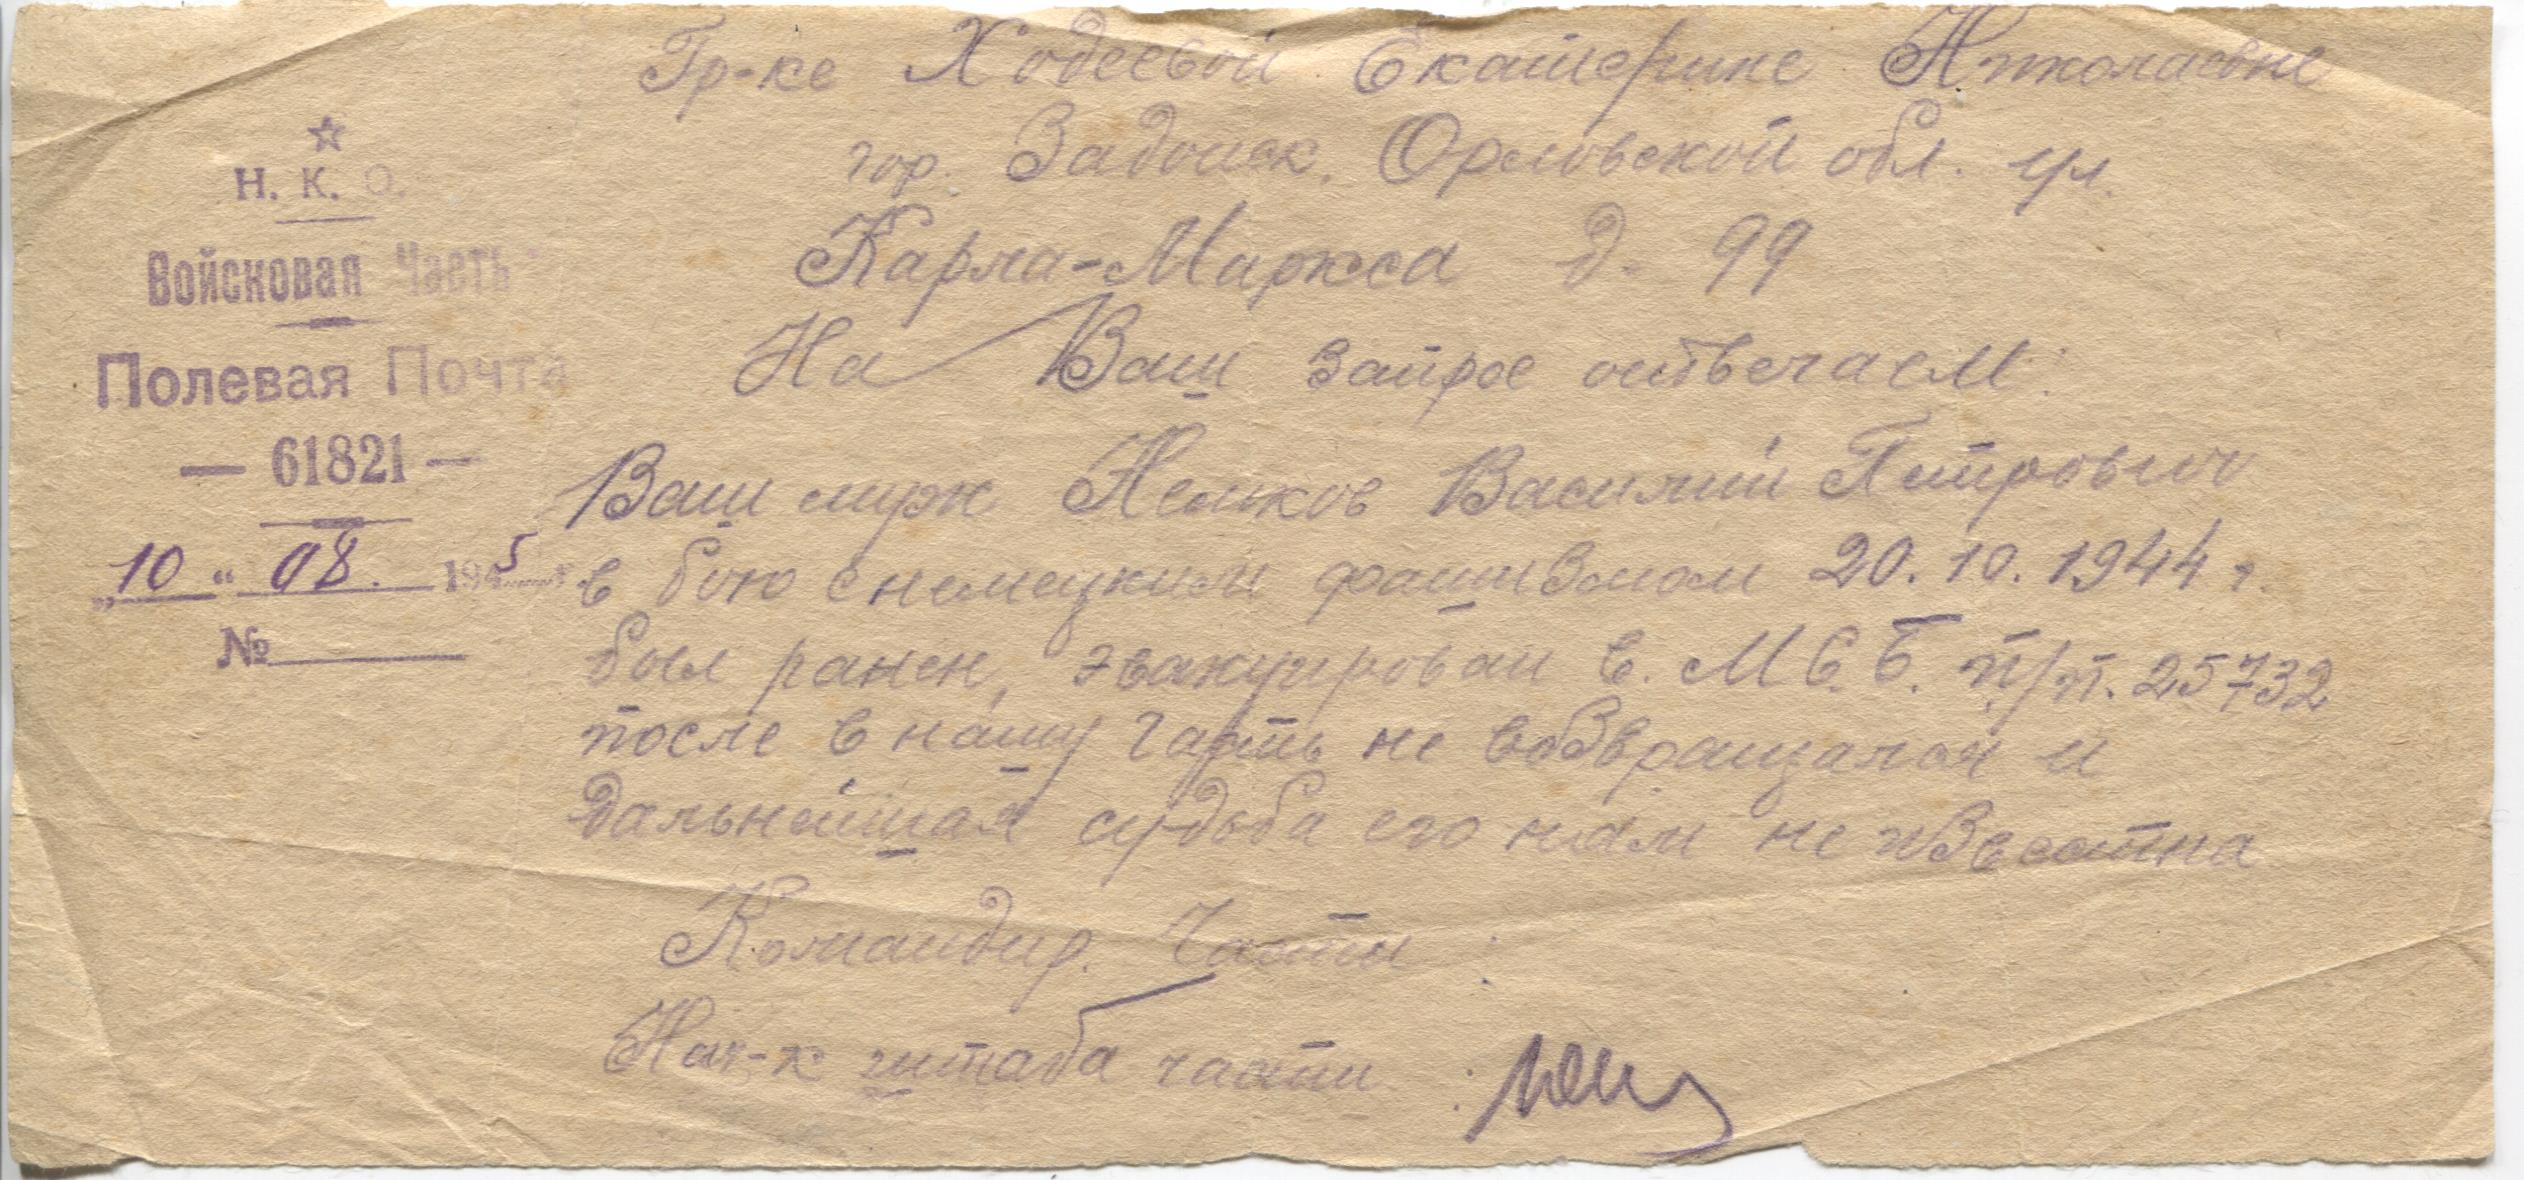 Гр-ке Ходеевой Екатерине Николаевне
гор. Задонск, Орловской обл. ул.
Карла-Маркса д. 99
На Ваш запрос отвечаем:
Ваш муж Василий Петрович
в бою с немецким фашизмом 20.10.1944 г.
был ранен, эвакуирован в. М.С.Б. п/п. 25732
после в нашу часть не возвращался и
дальнейшая судьба его нам не известна
Командир. Части :
Нач-к штаба части :
☆
Н. К. О.
Войсковая Часть
Полевая Почта
— 61821 —
„10“ 08. 1945 г.
№